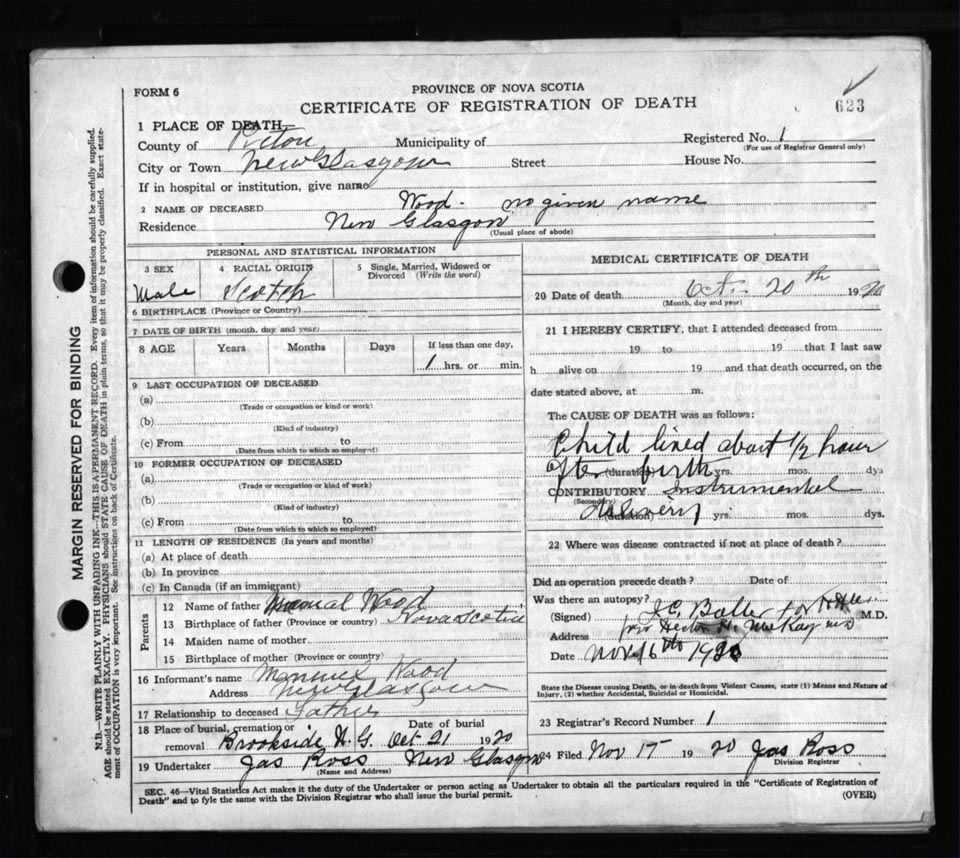 FORM 6
PROVINCE OF NOVA SCOTIA
CERTIFICATE OF REGISTRATION OF DEATH
623
1 PLACE OF DEATH
County of Pictou Municipality of Registered No. 1
(For use of Registrar General only)
City or Town New Glasgow Street House No.
If in hospital or institution, give name
2 NAME OF DECEASED Wood - no given name
Residence New Glasgow
(Usual place of abode)
PERSONAL AND STATISTICAL INFORMATION
3 SEX 4 RACIAL ORIGIN 5 Single, Married, Widowed or Divorced (Write the word)
Male Scotch
6 BIRTHPLACE (Province or Country)
7 DATE OF BIRTH (month, day and year)
8 AGE Years Months Days If less than one day,
1 hrs. or min.
9 LAST OCCUPATION OF DECEASED
(a)
(Trade or occupation or kind or work)
(b)
(Kind of industry)
(c) From to
(Date from which to which so employed)
10 FORMER OCCUPATION OF DECEASED
(a)
(Trade or occupation or kind of work)
(b)
(Kind of industry)
(c) From to
(Date from which to which so employed)
11 LENGTH OF RESIDENCE (In years and months)
(a) At place of death
(b) In province
(c) In Canada (if an immigrant)
Parents
12 Name of father Wood
13 Birthplace of father (Province or country) Nova Scotia
14 Maiden name of mother
15 Birthplace of mother (Province or country)
16 Informant's name Wood
Address New Glasgow
17 Relationship to deceased Father
18 Place of burial, cremation or removal Date of burial
Brookside N. G. Oct 21 1920
19 Undertaker Jas Ross New Glasgow
(Name and Address)
MEDICAL CERTIFICATE OF DEATH
20 Date of death Oct. 20th 1920
(Month, day and year)
21 I HEREBY CERTIFY, that I attended deceased from
19 to 19 that I last saw
h alive on 19 and that death occurred, on the
date stated above, at m.
The CAUSE OF DEATH was as follows:
Child lived about 1/2 hour
after birth
(duration) yrs. mos. dys
CONTRIBUTORY Instrumental
(Secondary)
delivery
(duration) yrs. mos. dys.
22 Where was disease contracted if not at place of death?
Did an operation precede death? Date of
Was there an autopsy?
(Signed) M.D.
per Hector H. McKay MD
Address
Date Nov 16th 1920
State the Disease causing Death, or in death from Violent Causes, state (1) Means and Nature of
Injury, (2) whether Accidental, Suicidal or Homicidal.
23 Registrar's Record Number 1
24 Filed Nov 17 1920 Jas Ross
Division Registrar
SEC. 46—Vital Statistics Act makes it the duty of the Undertaker or person acting as Undertaker to obtain all the particulars required in the "Certificate of Registration of
Death" and to fyle the same with the Division Registrar who shall issue the burial permit.
(OVER)
MARGIN RESERVED FOR BINDING
N.B.—WRITE PLAINLY WITH UNFADING INK—THIS IS A PERMANENT RECORD. Every item of information should be carefully supplied.
AGE should be stated EXACTLY. PHYSICIANS should STATE CAUSE OF DEATH in plain terms, so that it may be properly classified. Exact statement
of OCCUPATION is very important. See instructions on back of Certificate.